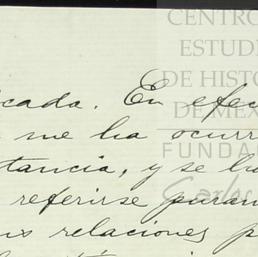 CENTRO
ESTUDI
DE HISTO
DE MÉX
FUNDAC
Carlos
icada. En efec
me ha ocurri
tancia, y se ha
referirse puram
us relaciones p